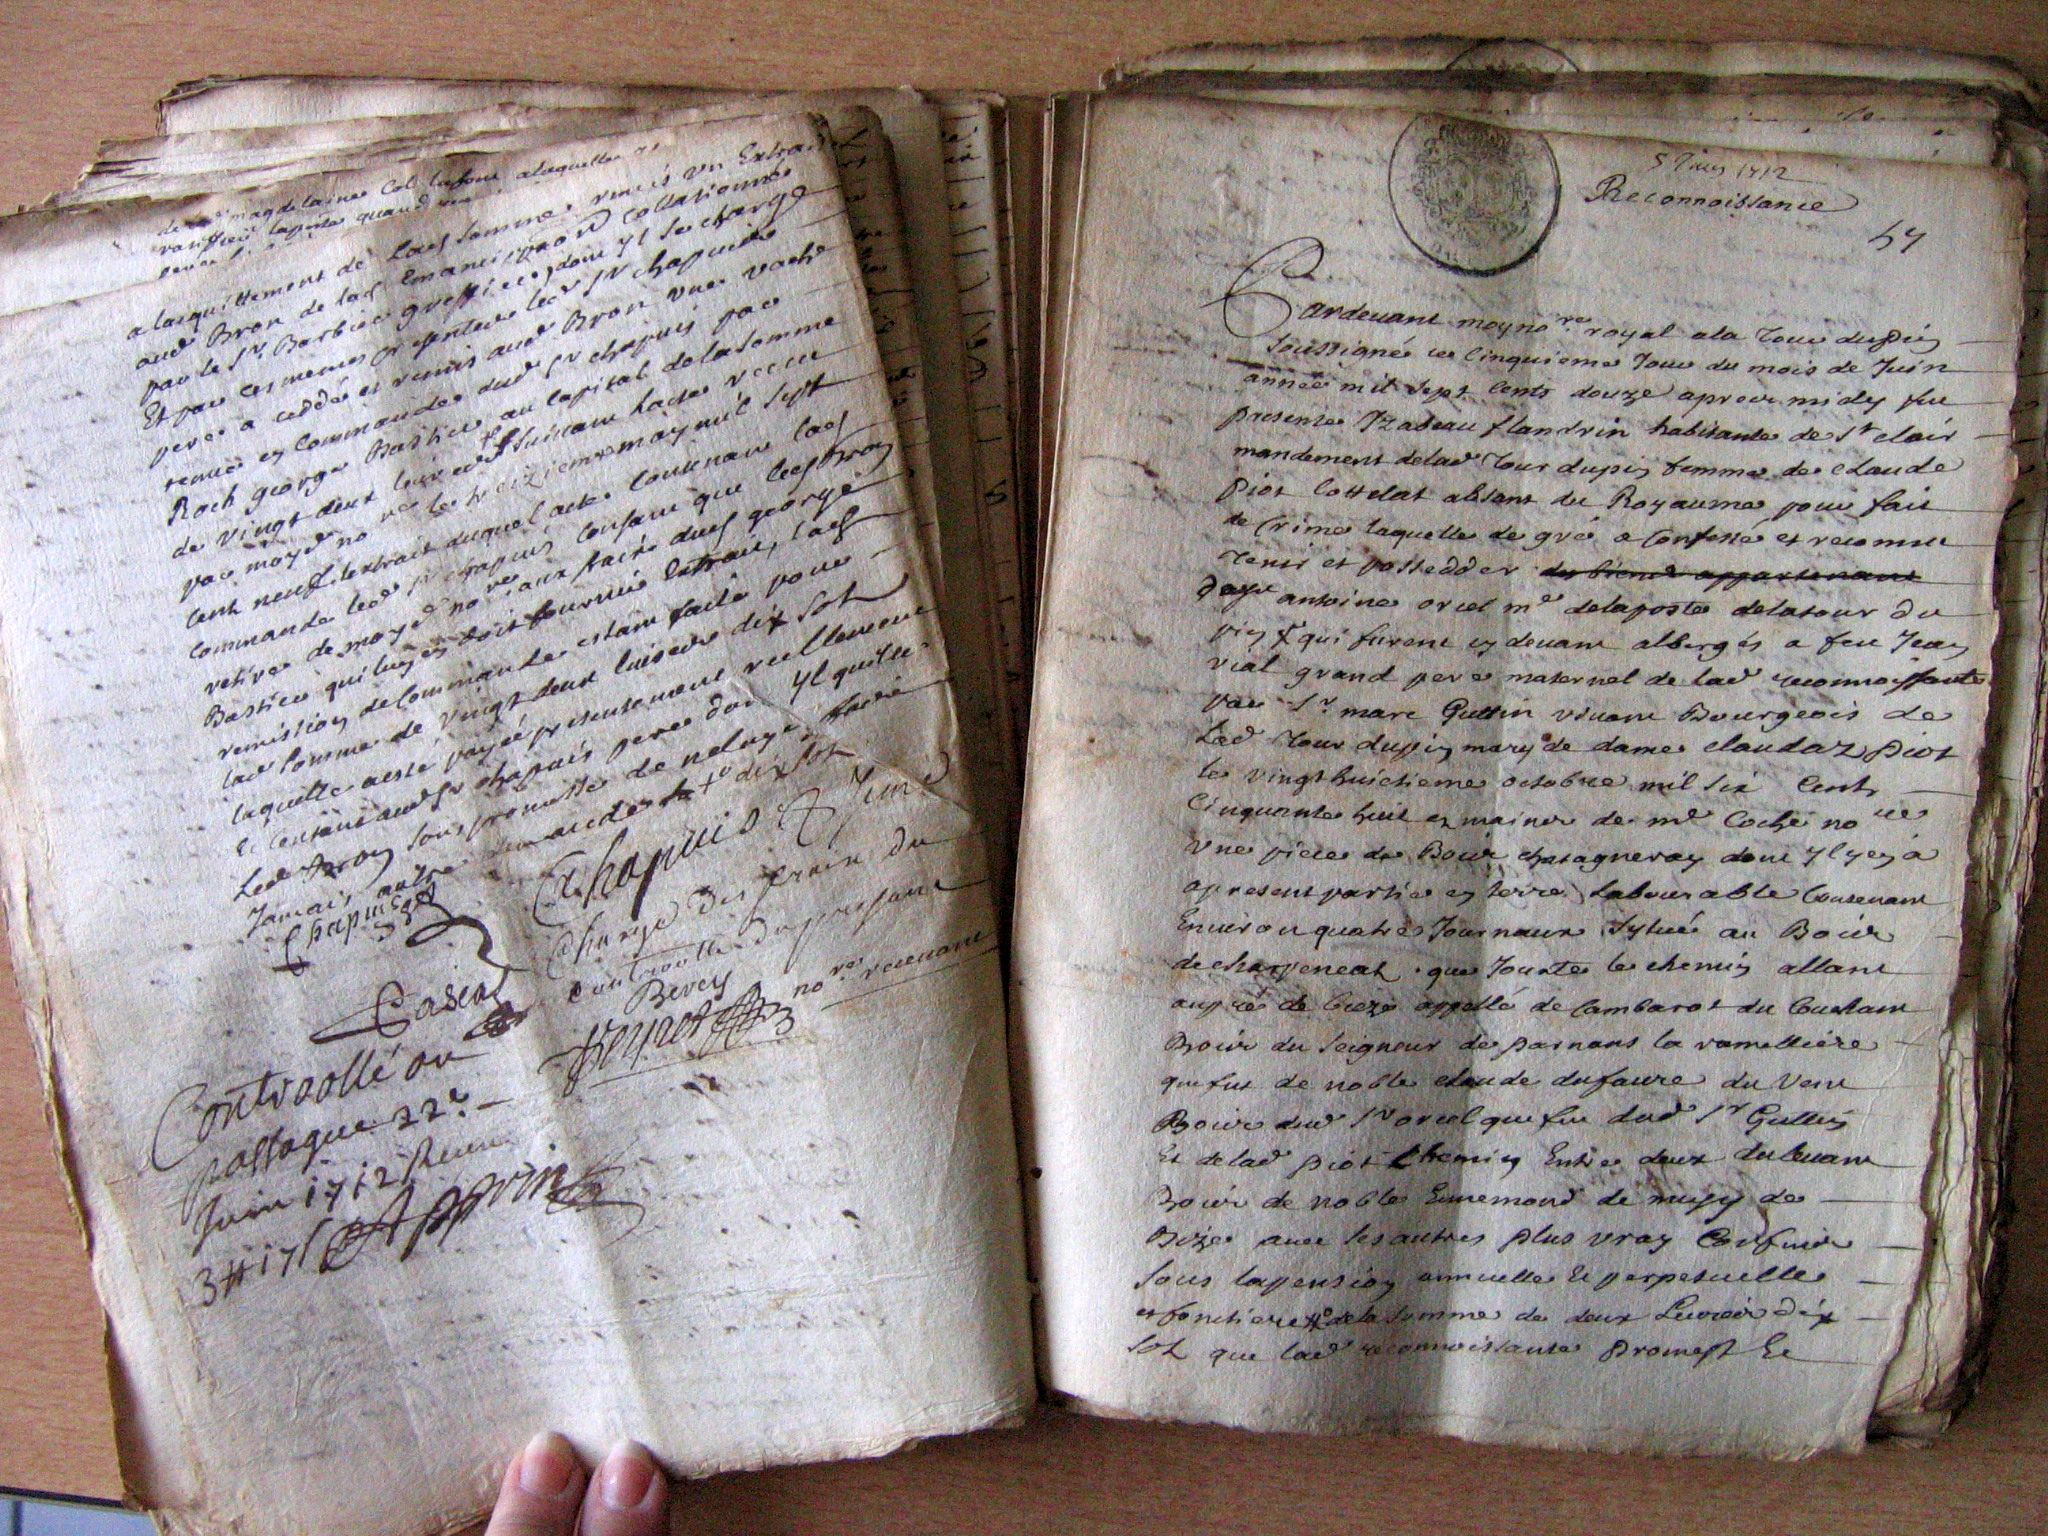 a lacquittement de lad somme remis un Extrait
aud Bron de lad Emancippaon collationné
par le Sr Barbier greffier, dont yl se charge
Et par ces mesmes presentes led Sr chapuis
pere a ceddé et remis aud Bron une vache
tenue en commande dud Sr chapuis par
Roch george Bastier au capital de la somme
de vingt deux livres suivant lacte receu
par moyd no re le treizieme may mil sept
cent neuf, lextrait duquel acte contenant lad
commande led Sr chapuis consent que led Bron
retire de moyd no re aux frais dud george
Bastier qui luy en doit fournir Extrait, lad
remission de commande estant faite pour
lad somme de vingt deux livres dix sols
laquelle a esté payée presentement reellement
et contant aud Sr chapuis pere dont yl quitte
led Bron sous promesse de ne luy en faire
Jamais autre demande + dix sols
Chapuis
Chapuis
Charge des frais du
controolle du present
Pascal
Bevey
no re recevant
Controollé au
passage 22e
Juin 1712 Receu
3# 17s Apprin
5 Juin 1712
Reconnoissance
57
Pardevant moy no re royal a la Tour dupin
soussigné ce cinquieme Jour du mois de Juin
année mil sept cents douze apres midy fut
presente Izabeau flandrin habitante de St clair
mandement de lad Tour dupin femme de claude
piot cottelat absant du Royaume pour fait
de Crime laquelle de gré a confessé et reconnu
tenir et possedder des biens appartenant
antoine orcel me de la poste de la tour du
pin + qui furent cy devant albergés a feu Jean
vial grand pere maternel de lad reconnoissante
par Sr marc Guttin vivant Bourgeois de
Lad Tour dupin mary de dame claudaz piot
le vingt huictieme octobre mil six Cents
Cinquante huit ez mains de me Coche no re
Une piece de Bois chatagneray dont yl y en a
apresent partie en terre Labourable Contenant
Environ quatre Journaux sytué au Bois
de charpeneat que Jouxte le chemin allant
appellé de Cambarot du Couchant
Bois du seigneur de parnans la ramelliere
que fut de noble claude dufaure du Vent
Bois dud Sr orcel que fut dud Sr Guttin
Et de lad piot Chemin Entre deux du levant
Bois de noble Ennemond de musy de
Bize avec ses autres plus vray Confins
sous la pension annuelle Et perpetuelle
et fonciere de la somme de deux Livres dix
sols que lad reconnoissante Promest Et